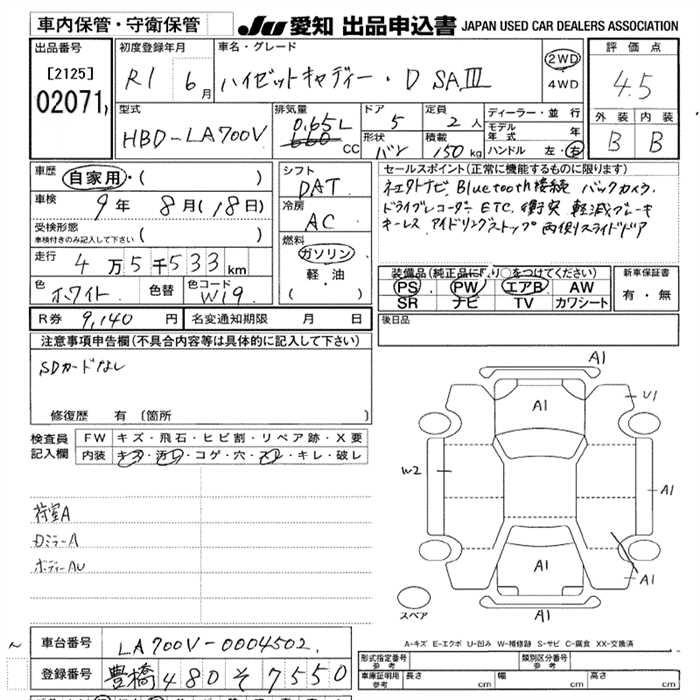 車内保管・守衛保管
JU 愛知 出品申込書 JAPAN USED CAR DEALERS ASSOCIATION
出品番号
[2125]
02071
初度登録年月
R1 6月
車名・グレード
ハイゼットキャディー・D SAⅢ
2WD
4WD
評価点
4.5
外装 内装
B B
型式
HBD-LA700V
排気量
0.65L
660 CC
ドア
5
形状
バン
定員
2人
積載
150kg
ディーラー・並行
モデル年式 年
ハンドル 左・右
車歴
自家用・( )
車検
9年 8月(18日)
受検形態
車検付きのみ記入して下さい ( )
走行
4万5千533km
色
ホワイト
色替
色コード
W19
シフト
DAT
冷房
AC
燃料
ガソリン
軽・油
( )
セールスポイント(正常に機能するものに限ります)
Bluetooth接続 バックカメラ.
ドライブレコーダー ETC. 衝突軽減ブレーキ
キーレス アイドリングストップ 両側スライドドア
装備品(純正品に限り○をつけてください)
PS PW エアB AW
SR ナビ TV カワシート
新車保証書
有・無
R券 9,140円
名変通知期限 月 日
後日品
注意事項申告欄(不具合内容等は具体的に記入して下さい)
SDカードなし
修復歴 有(箇所
検査員記入欄
FW キズ・飛石・ヒビ割・リペア跡・X要
内装 キズ・汚れ・コゲ・穴・スレ・キレ・破レ
荷室A
Dミラー A
ボディーAU
A1
A1
U1
W2
A1
A1
A1
A1
スペア
A-キズ E-エクボ U-凹み W-補修跡 S-サビ C-腐食 XX-交換済
車台番号 LA700V-0004502
登録番号 豊橋 480 そ 7550
形式指定番号 参考
類別区分番号 参考
車庫証明用参考 長さ cm 幅 cm 高さ cm